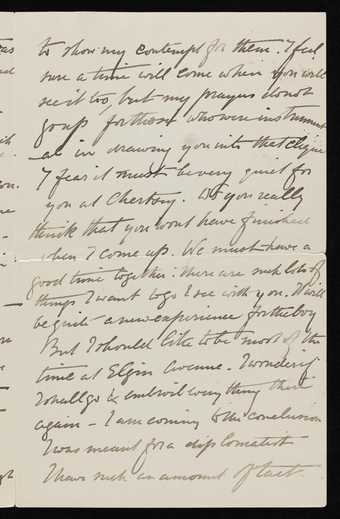 to show my contempt for them. I feel
sure a time will come when you will
see it too, but my prayers do not
go up for those who were instrument
al in drawing you into that clique
I fear it must be very quiet for
you at Chertsey. Do you really
think that you wont have finished
when I come up. We must have a
good time together: there are such lots of
things I want to go & see with you. It will
be quite a new experience for the boy
But I should like to be most of the
time at Elgin Avenue. I wonder if
I shall go & embroil everything there
again – I am coming to the conclusion
I was meant for a diplomatist
I have such an amount of tact